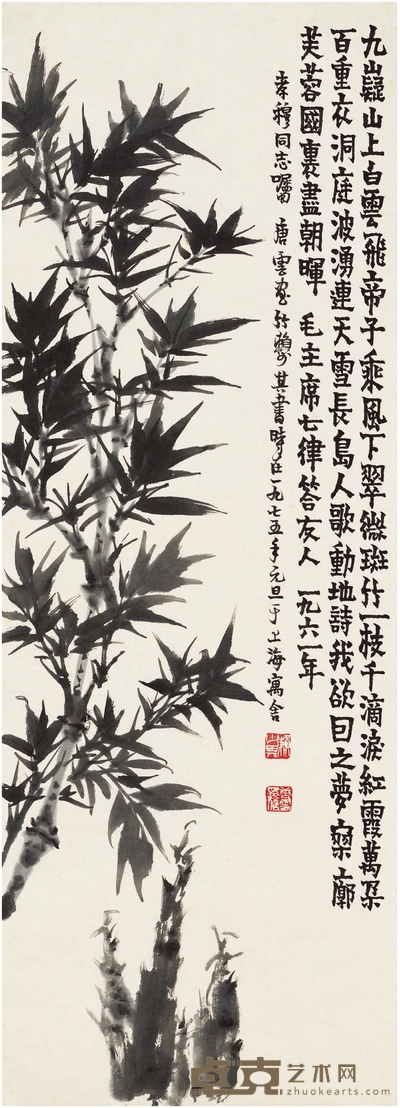 九嶷山上白雲飛帝子乘風下翠微斑竹一枝千滴淚紅霞萬朵
百重衣洞庭波湧連天雪長島人歌動地詩我欲囙之夢寥廓
芙蓉國裏盡朝暉 毛主席七律答友人 一九六一年
穆同志囑 唐雲畫竹 其書時在一九七五年元旦于上海寓舍
卓克艺术网
zhuokearts.com